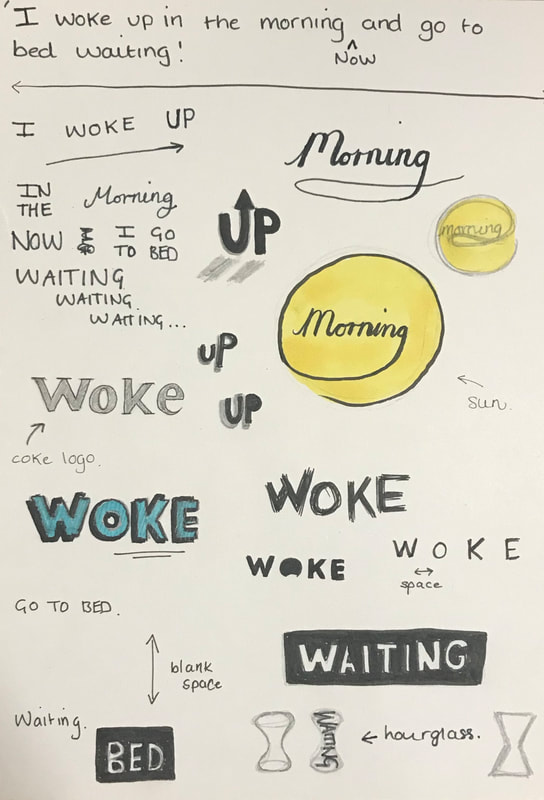 'I woke up in the morning and go to
bed waiting!
Now
I WOKE UP
Morning
IN
THE
Morning
UP
morning
NOW
I GO
TO BED
WAITING
WAITING.
WAITING...
Morning
UP
Woke
UP
sun.
coke logo.
WOKE
WOKE
WOKE
W O K E
space
GO TO BED.
WAITING
blank
space
Waiting.
BED
WAITING
hourglass.